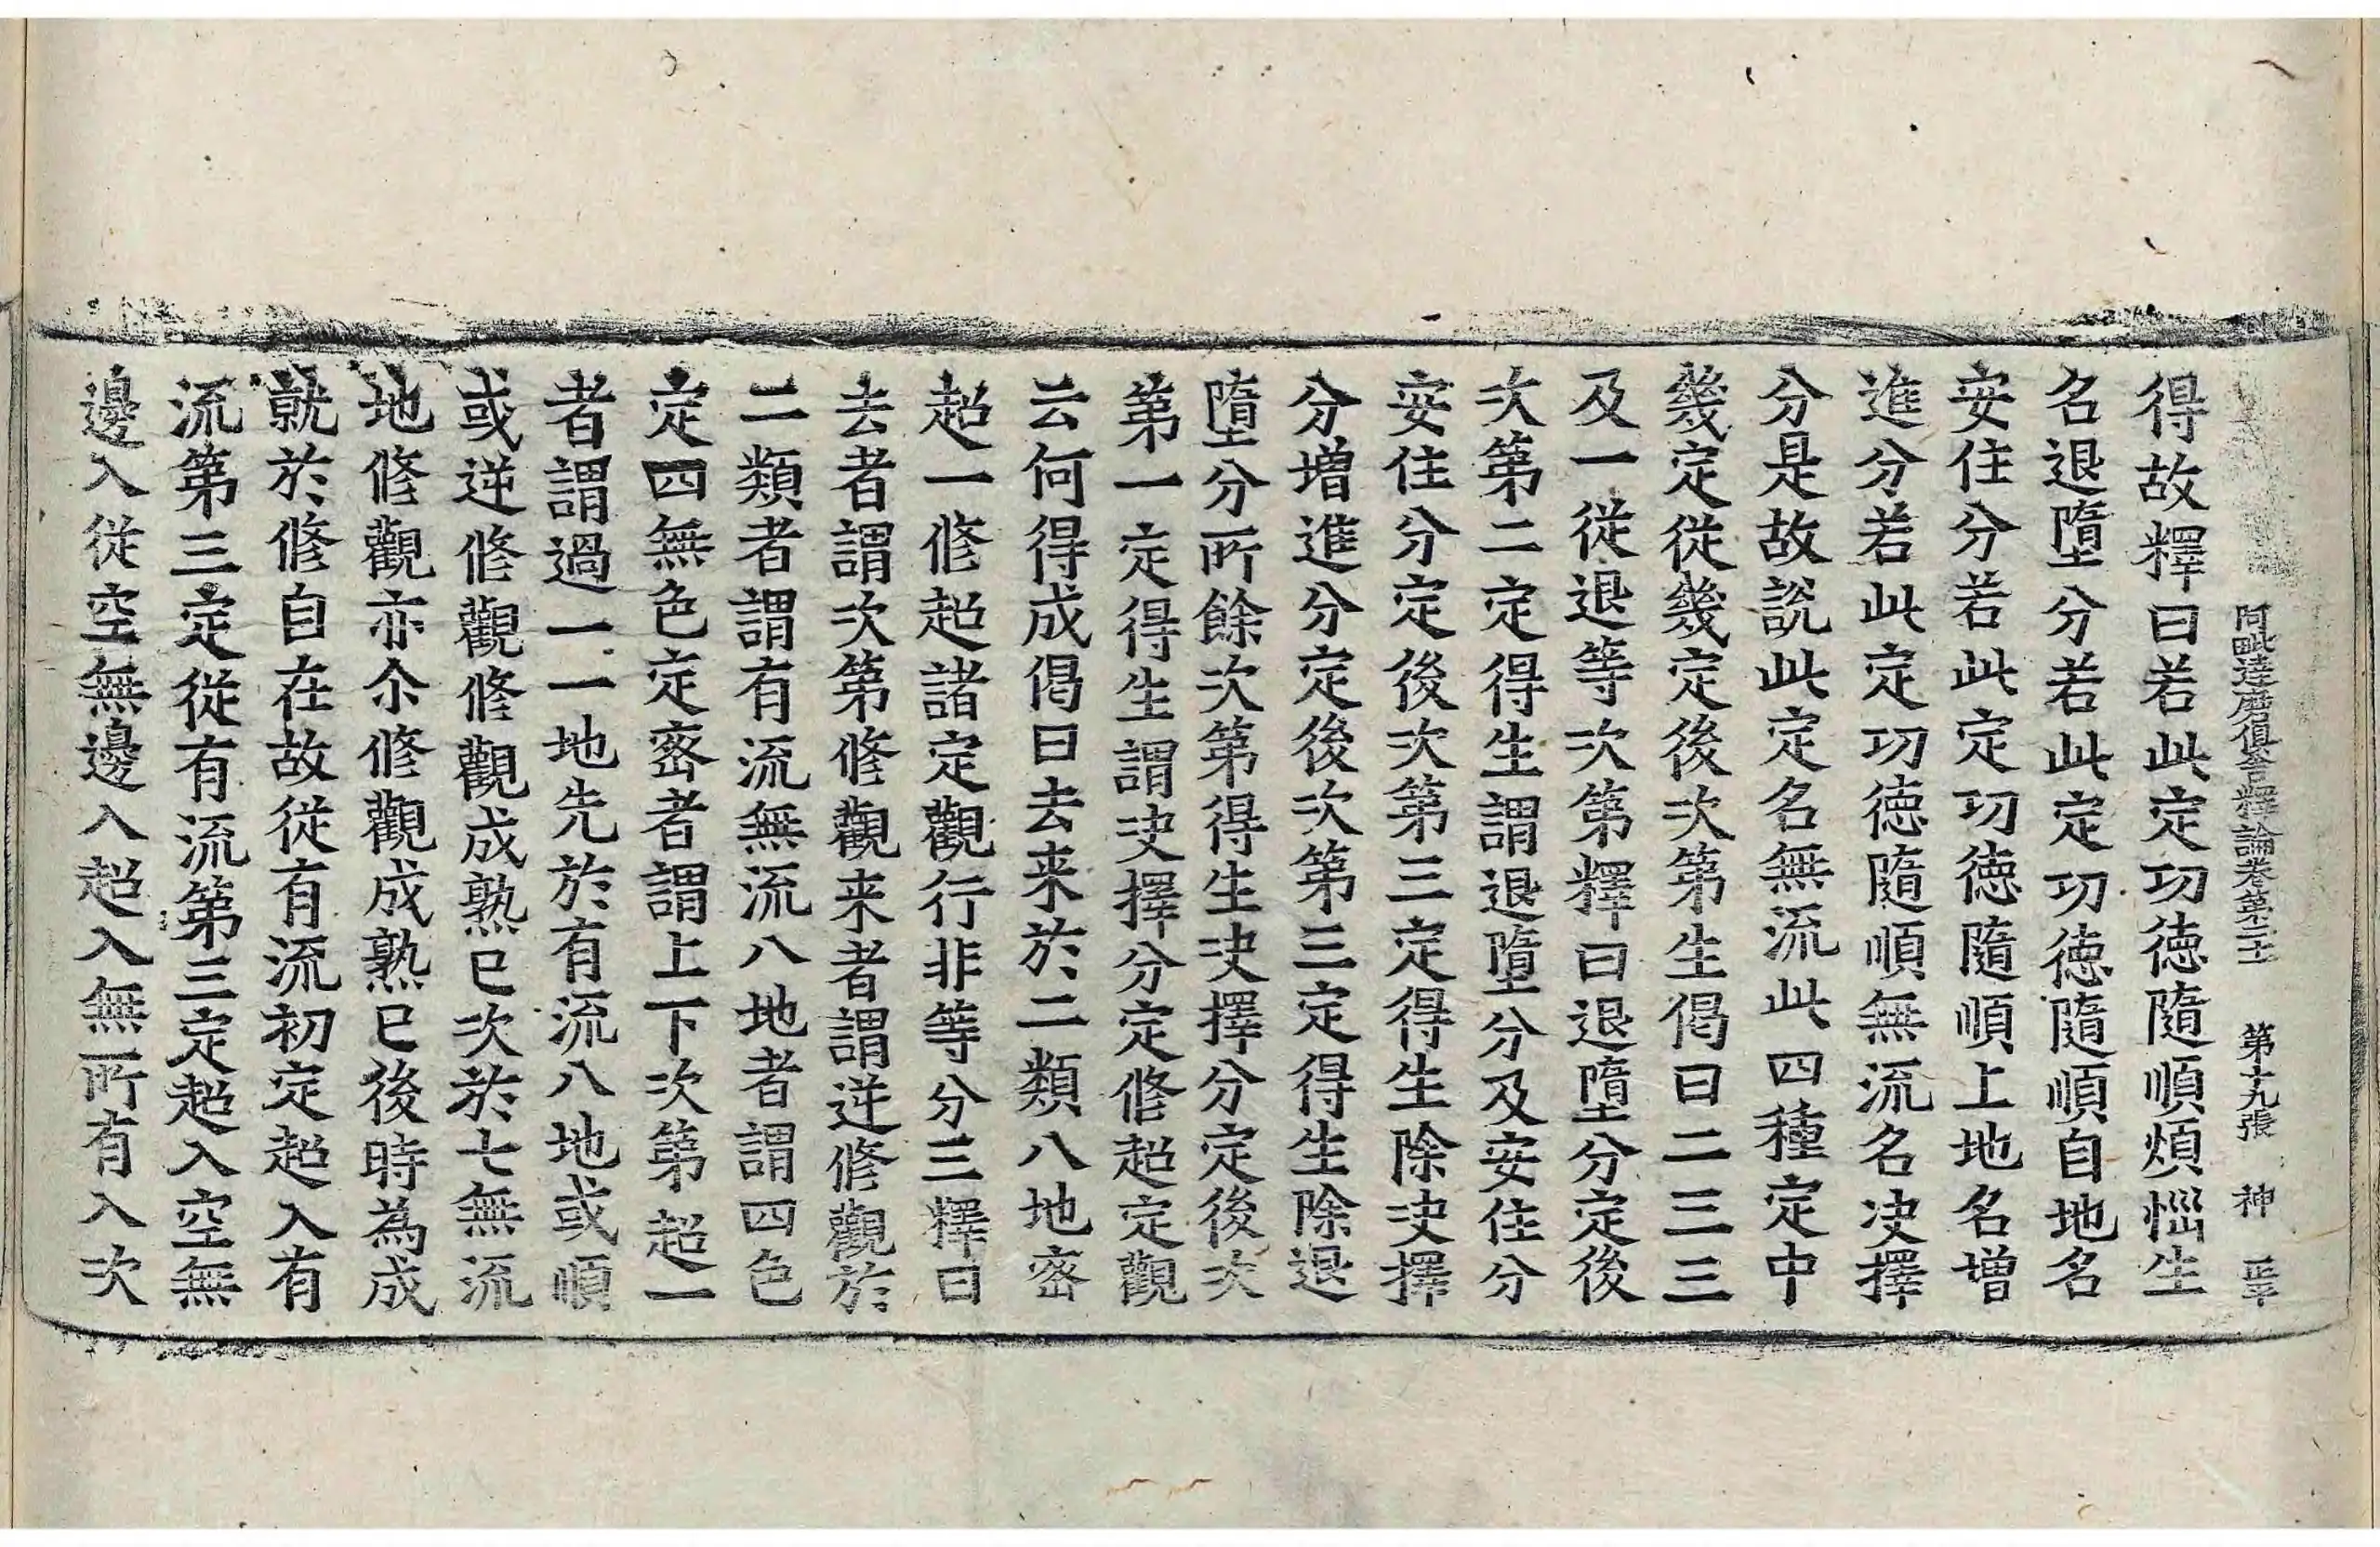 阿毗達磨俱舍釋論卷第二十一 第十九張 神
得故釋曰若此定功德隨順煩惱生
名退墮分若此定功德隨順自地名
安住分若此定功德隨順上地名增
進分若此定功德隨順無流名決擇
分是故說此定名無流此四種定中
幾定從幾定後次第生偈曰二三三
及一從退等次第釋曰退墮分定後
次第二定得生謂退墮分及安住分
安住分定後次第三定得生除決擇
分增進分定後次第三定得生除退
墮分所餘次第得生決擇分定後次
第一定得生謂決擇分定修超定觀
云何得成偈曰去来於二類八地密
超一修超諸定觀行非等分三釋曰
去者謂次第修觀来者謂逆修觀於
二類者謂有流無流八地者謂四色
定四無色定密者謂上下次第超一
者謂過一一地先於有流八地或順
或逆修觀修觀成熟已次於七無流
地修觀亦尒修觀成熟已後時為成
就於修自在故從有流初定超入有
流第三定從有流第三定超入空無
邊入從空無邊入超入無所有入次